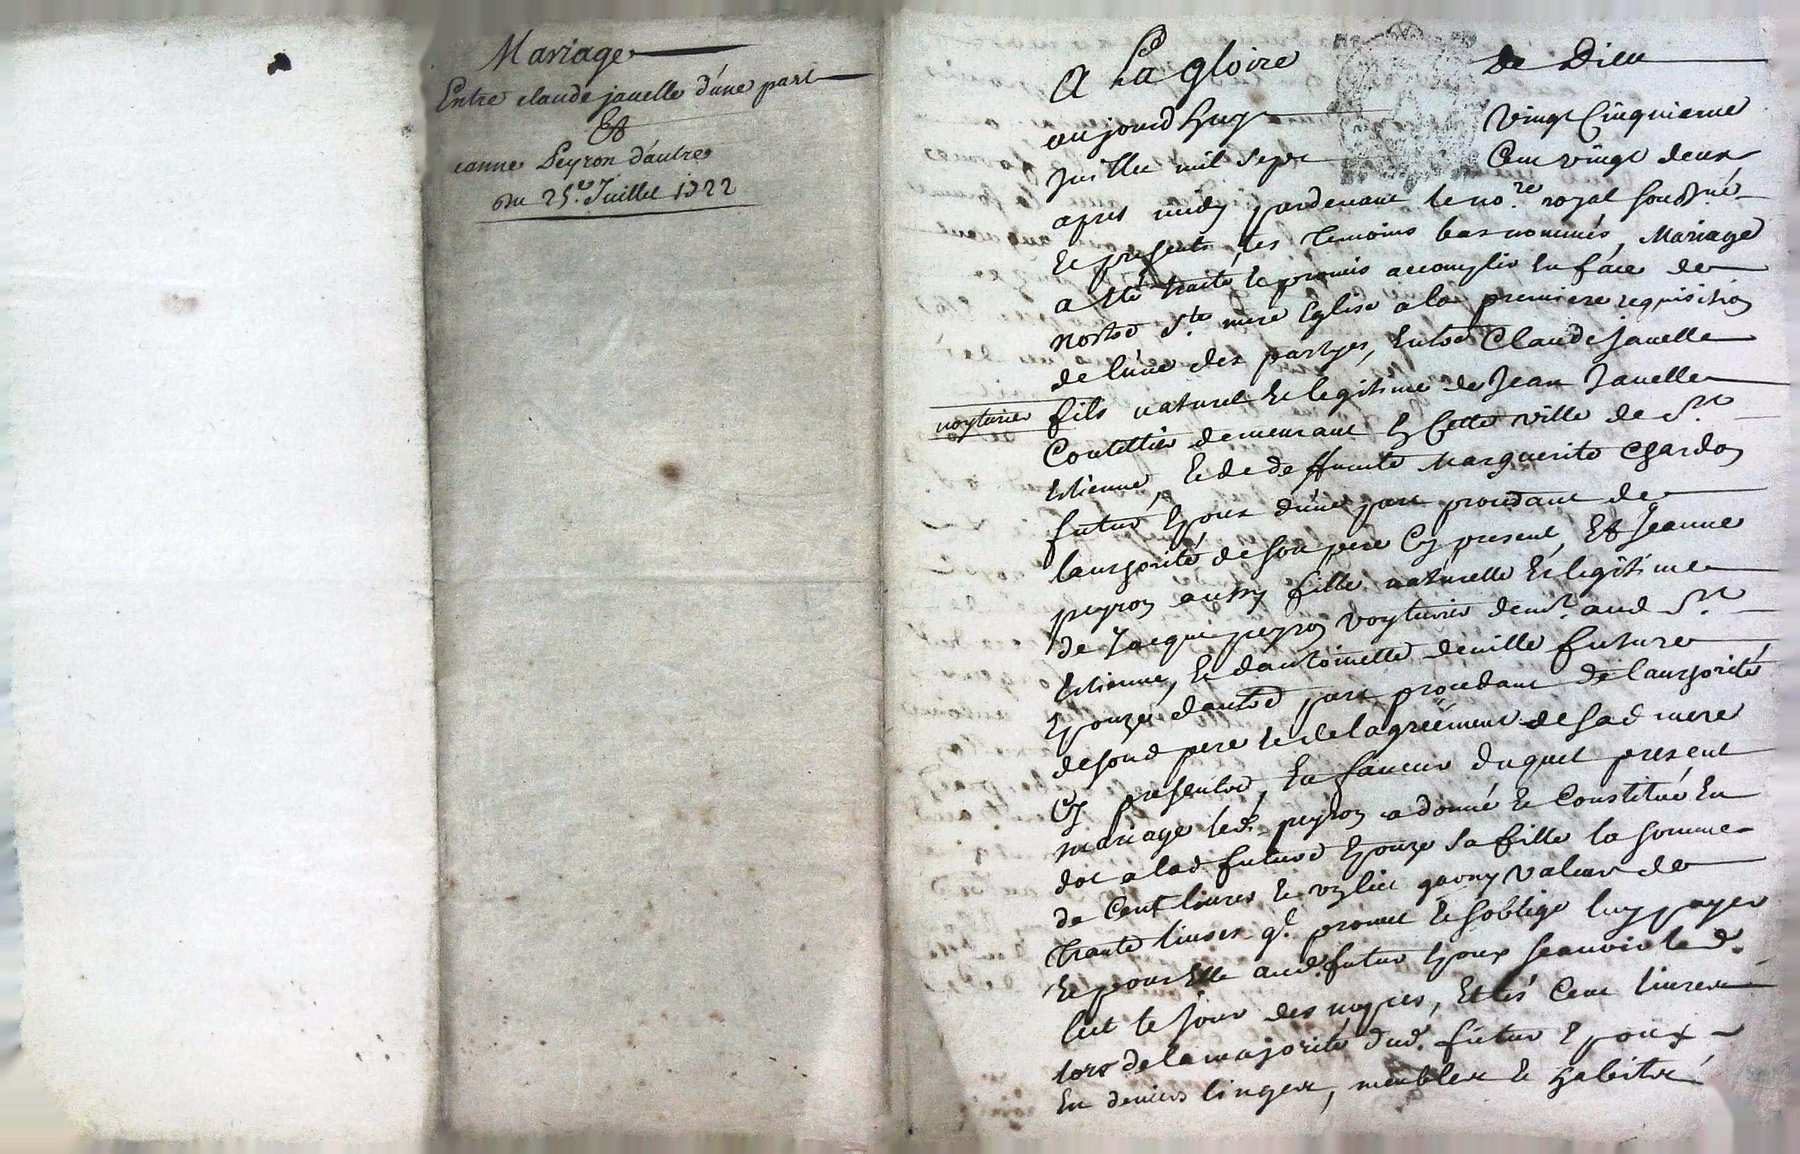 Mariage
Entre claude javelle d'une part
Et
eanne Peyron d'autre
Du 25.e Juillet 1722
A La gloire de Dieu
aujourd'huy vingt Cinquieme
Juillet mil sept Cent vingt deux
apres midy pardevant le no.re royal soussné
Et presents les temoins bas nommés, Mariage
a esté traité, et promis accomplir en face de
nostre S.te mere Eglise a la premiere requisition
de l'une des partyes, Entre Claude javelle
voyturier fils naturel et legitime de Jean Javelle
Coutellier demeurant En Cette ville de S.t
Estienne, et de deffunte Marguerite Chardon
futur Epoux d'une part procedant de
l'authorité de son pere Cy present, Et Jeanne
peyron aussy fille naturelle et legitime
de Jacques peyron voyturier demt aud St
Estienne, et d'antoinette deville future
Epouze d'autre part procedant de l'authorité
de sond pere et de l'agreément de sad mere
Cy presente, En faveur duquel present
mariage led. peyron a donné et Constitué En
dot a lad future Epouze sa fille la somme
de Cent livres et un lict garny valeur de
trante livres q.l promet et s'oblige luy payer
Et pour Elle aud. futur Epoux scavoir led.
lict le jour des nopces, Et les Cent livres
lors de la majorité dud. futur Epoux
En deniers linges, meubles et habits